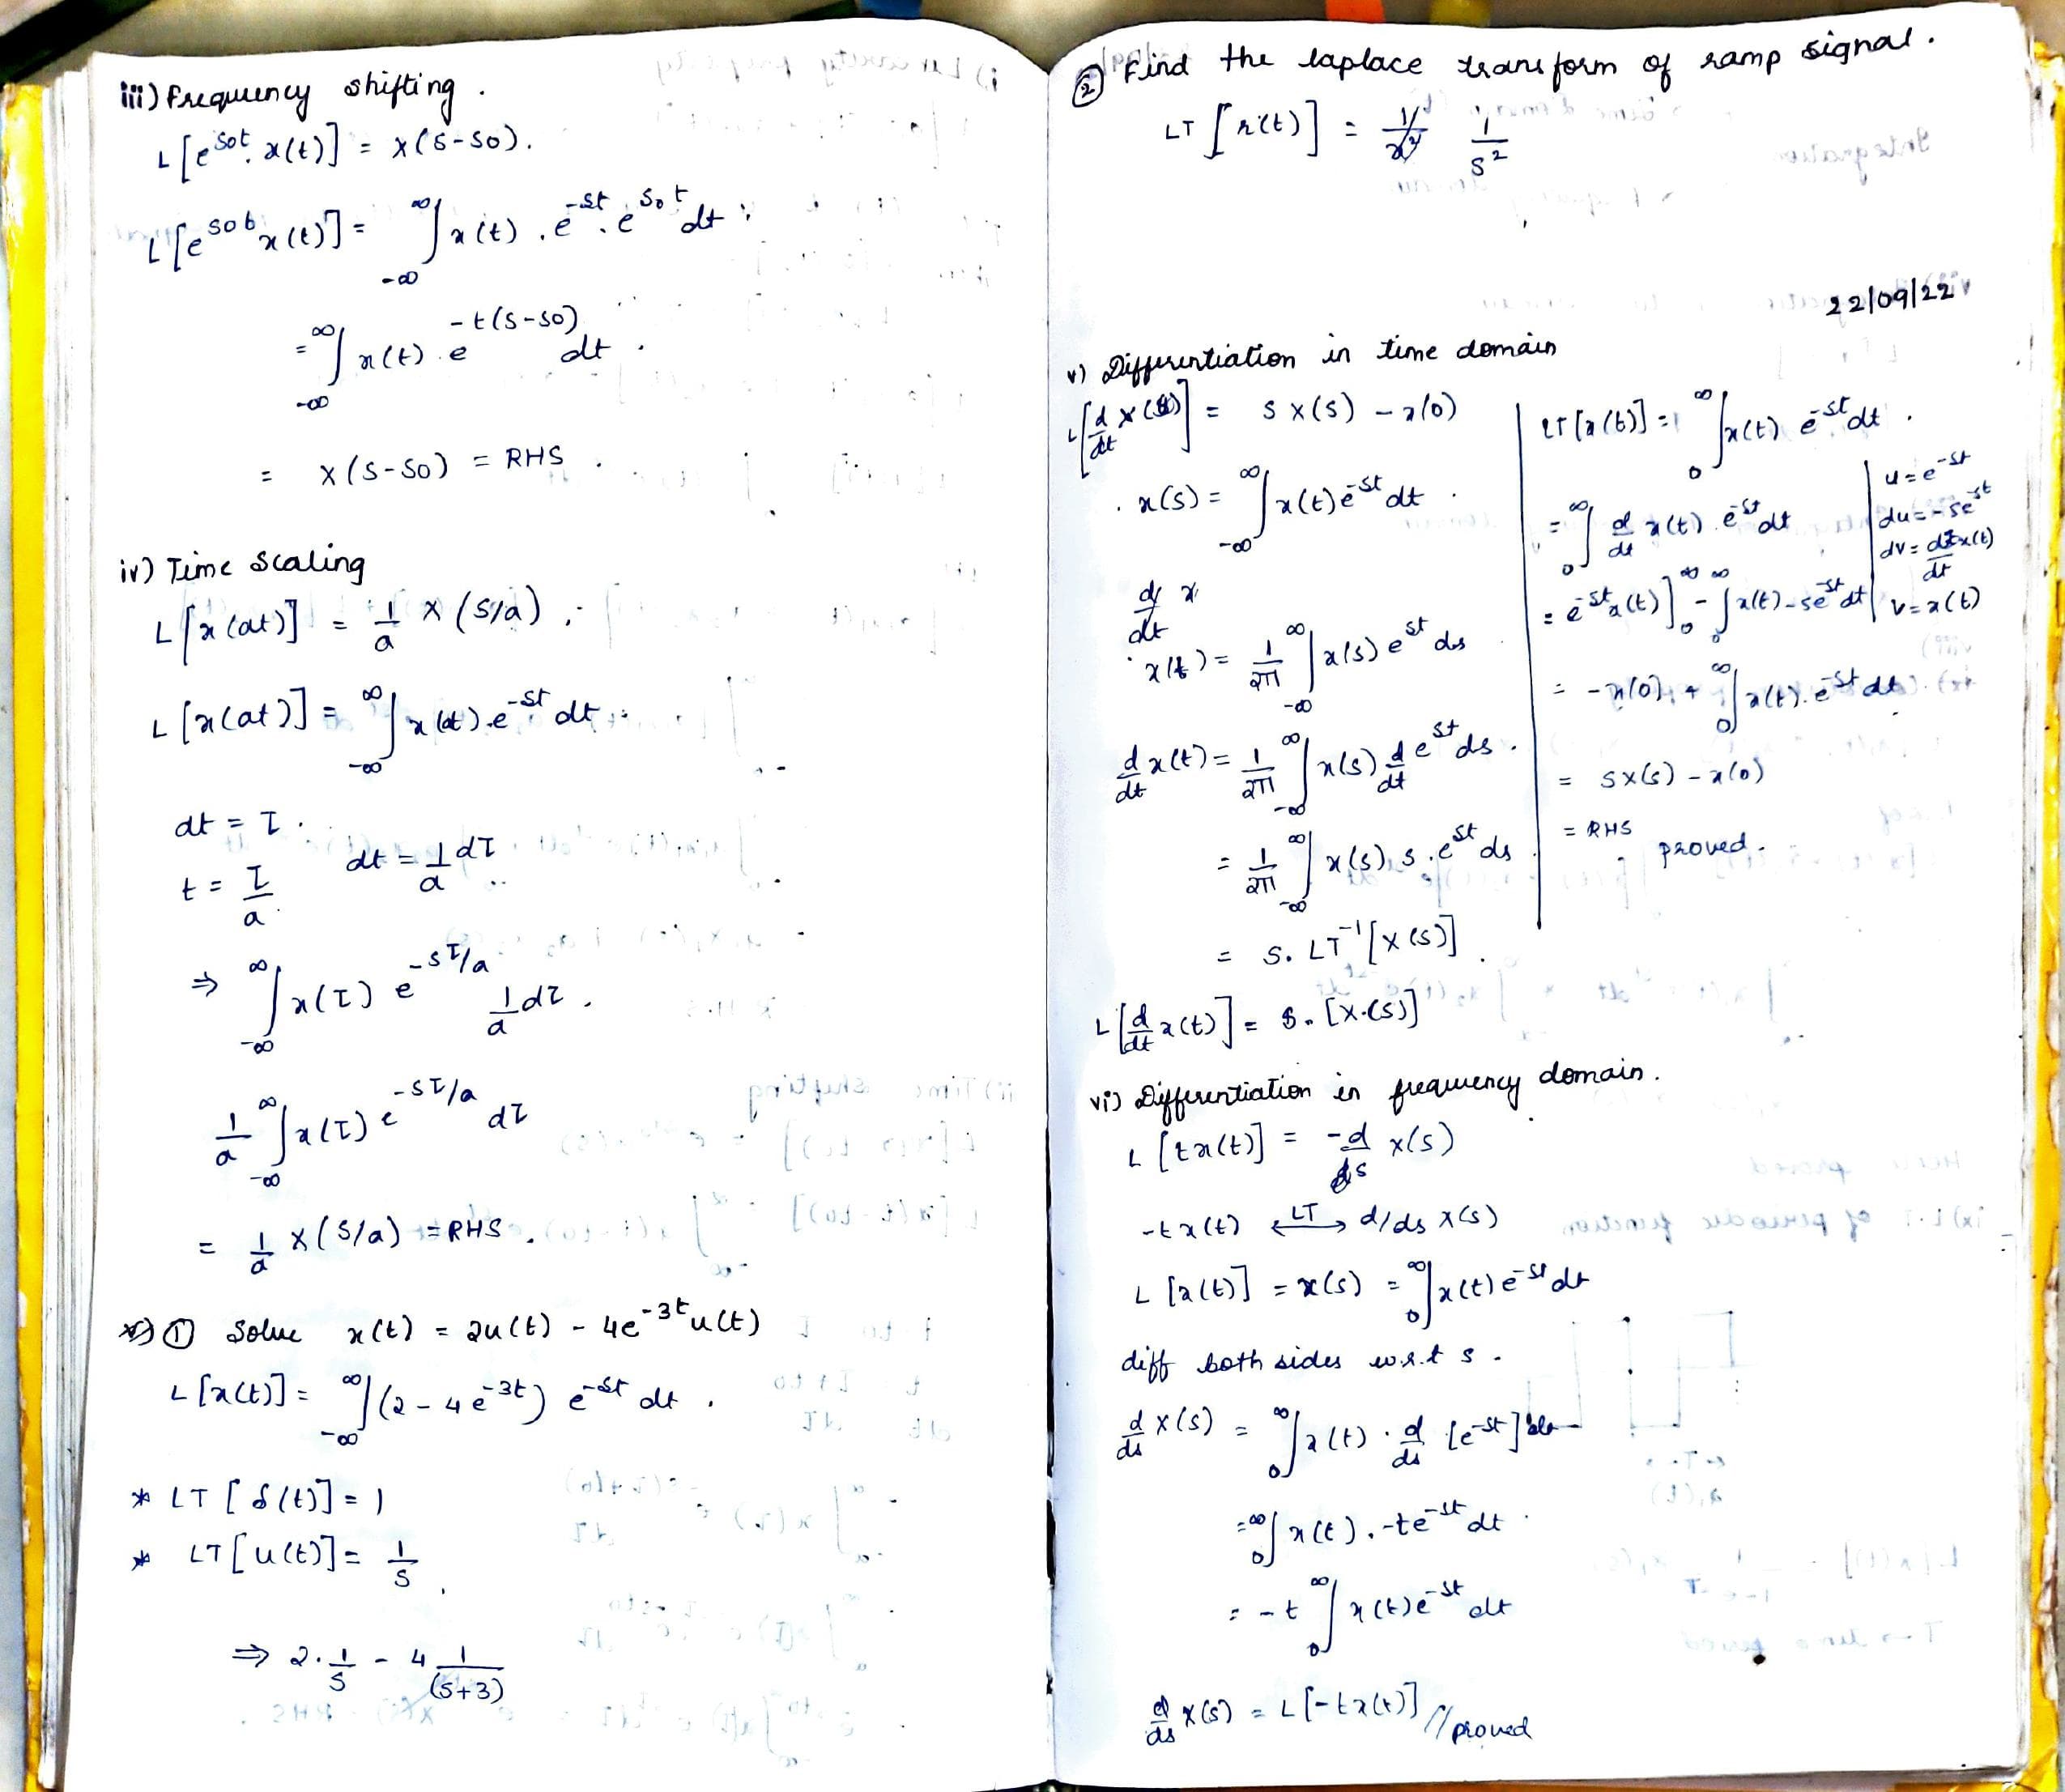 iii) frequency shifting.
L[e^{s0t}. x(t)] = X(s-s0).
L[e^{s0t} x(t)] = ∫_{-∞}^{∞} x(t) . e^{-st} . e^{s0t} dt
= ∫_{-∞}^{∞} x(t) . e^{-t(s-s0)} dt .
= X(s-s0) = RHS .
iv) Time scaling
L[x(at)] = 1/a X(s/a)
L[x(at)] = ∫_{-∞}^{∞} x(at) . e^{-st} dt
dt = τ .
t = τ/a dt = 1/a dτ
⇒ ∫_{-∞}^{∞} x(τ) e^{-sτ/a} 1/a dτ .
1/a ∫_{-∞}^{∞} x(τ) e^{-sτ/a} dτ
= 1/a X(s/a) = RHS .
① Solve x(t) = 2u(t) - 4e^{-3t} u(t)
L[x(t)] = ∫_{-∞}^{∞} (2 - 4e^{-3t}) e^{-st} dt .
* LT [δ(t)] = 1
* LT [u(t)] = 1/s
⇒ 2. 1/s - 4 1/(s+3)
② Find the laplace transform of ramp signal.
LT [r(t)] = 1/s^2
22/09/22
v) Differentiation in time domain
L[d/dt x(t)] = s X(s) - x(0)
x(s) = ∫_{-∞}^{∞} x(t) e^{-st} dt .
d/dt x
x(t) = 1/2π ∫_{-∞}^{∞} x(s) e^{st} ds
d/dt x(t) = 1/2π ∫_{-∞}^{∞} x(s) d/dt e^{st} ds .
= 1/2π ∫_{-∞}^{∞} x(s) . s . e^{st} ds
= s. LT^{-1} [X(s)]
L[d/dt x(t)] = s. [X(s)]
LT[x(t)] = ∫_{0}^{∞} x(t) e^{-st} dt .
= ∫_{0}^{∞} d/dt x(t) . e^{-st} dt
= e^{-st} x(t)]_{0}^{∞} - ∫_{0}^{∞} x(t) - se^{-st} dt
= - x(0) + ∫_{0}^{∞} x(t) . e^{-st} dt
= sX(s) - x(0)
= RHS proved.
u = e^{-st}
du = -se^{-st}
dv = d x(t)/dt
v = x(t)
vi) Differentiation in frequency domain.
L [tx(t)] = -d/ds X(s)
-t x(t) ⟷^{LT} d/ds X(s)
L [x(t)] = x(s) = ∫_{0}^{∞} x(t) e^{-st} dt
diff both sides w.r.t s .
d/ds X(s) = ∫_{0}^{∞} x(t) . d/ds [e^{-st}] dt
= ∫_{0}^{∞} x(t) . -te^{-st} dt
= -t ∫_{0}^{∞} x(t) e^{-st} dt
d/ds X(s) = L[-tx(t)] // proved